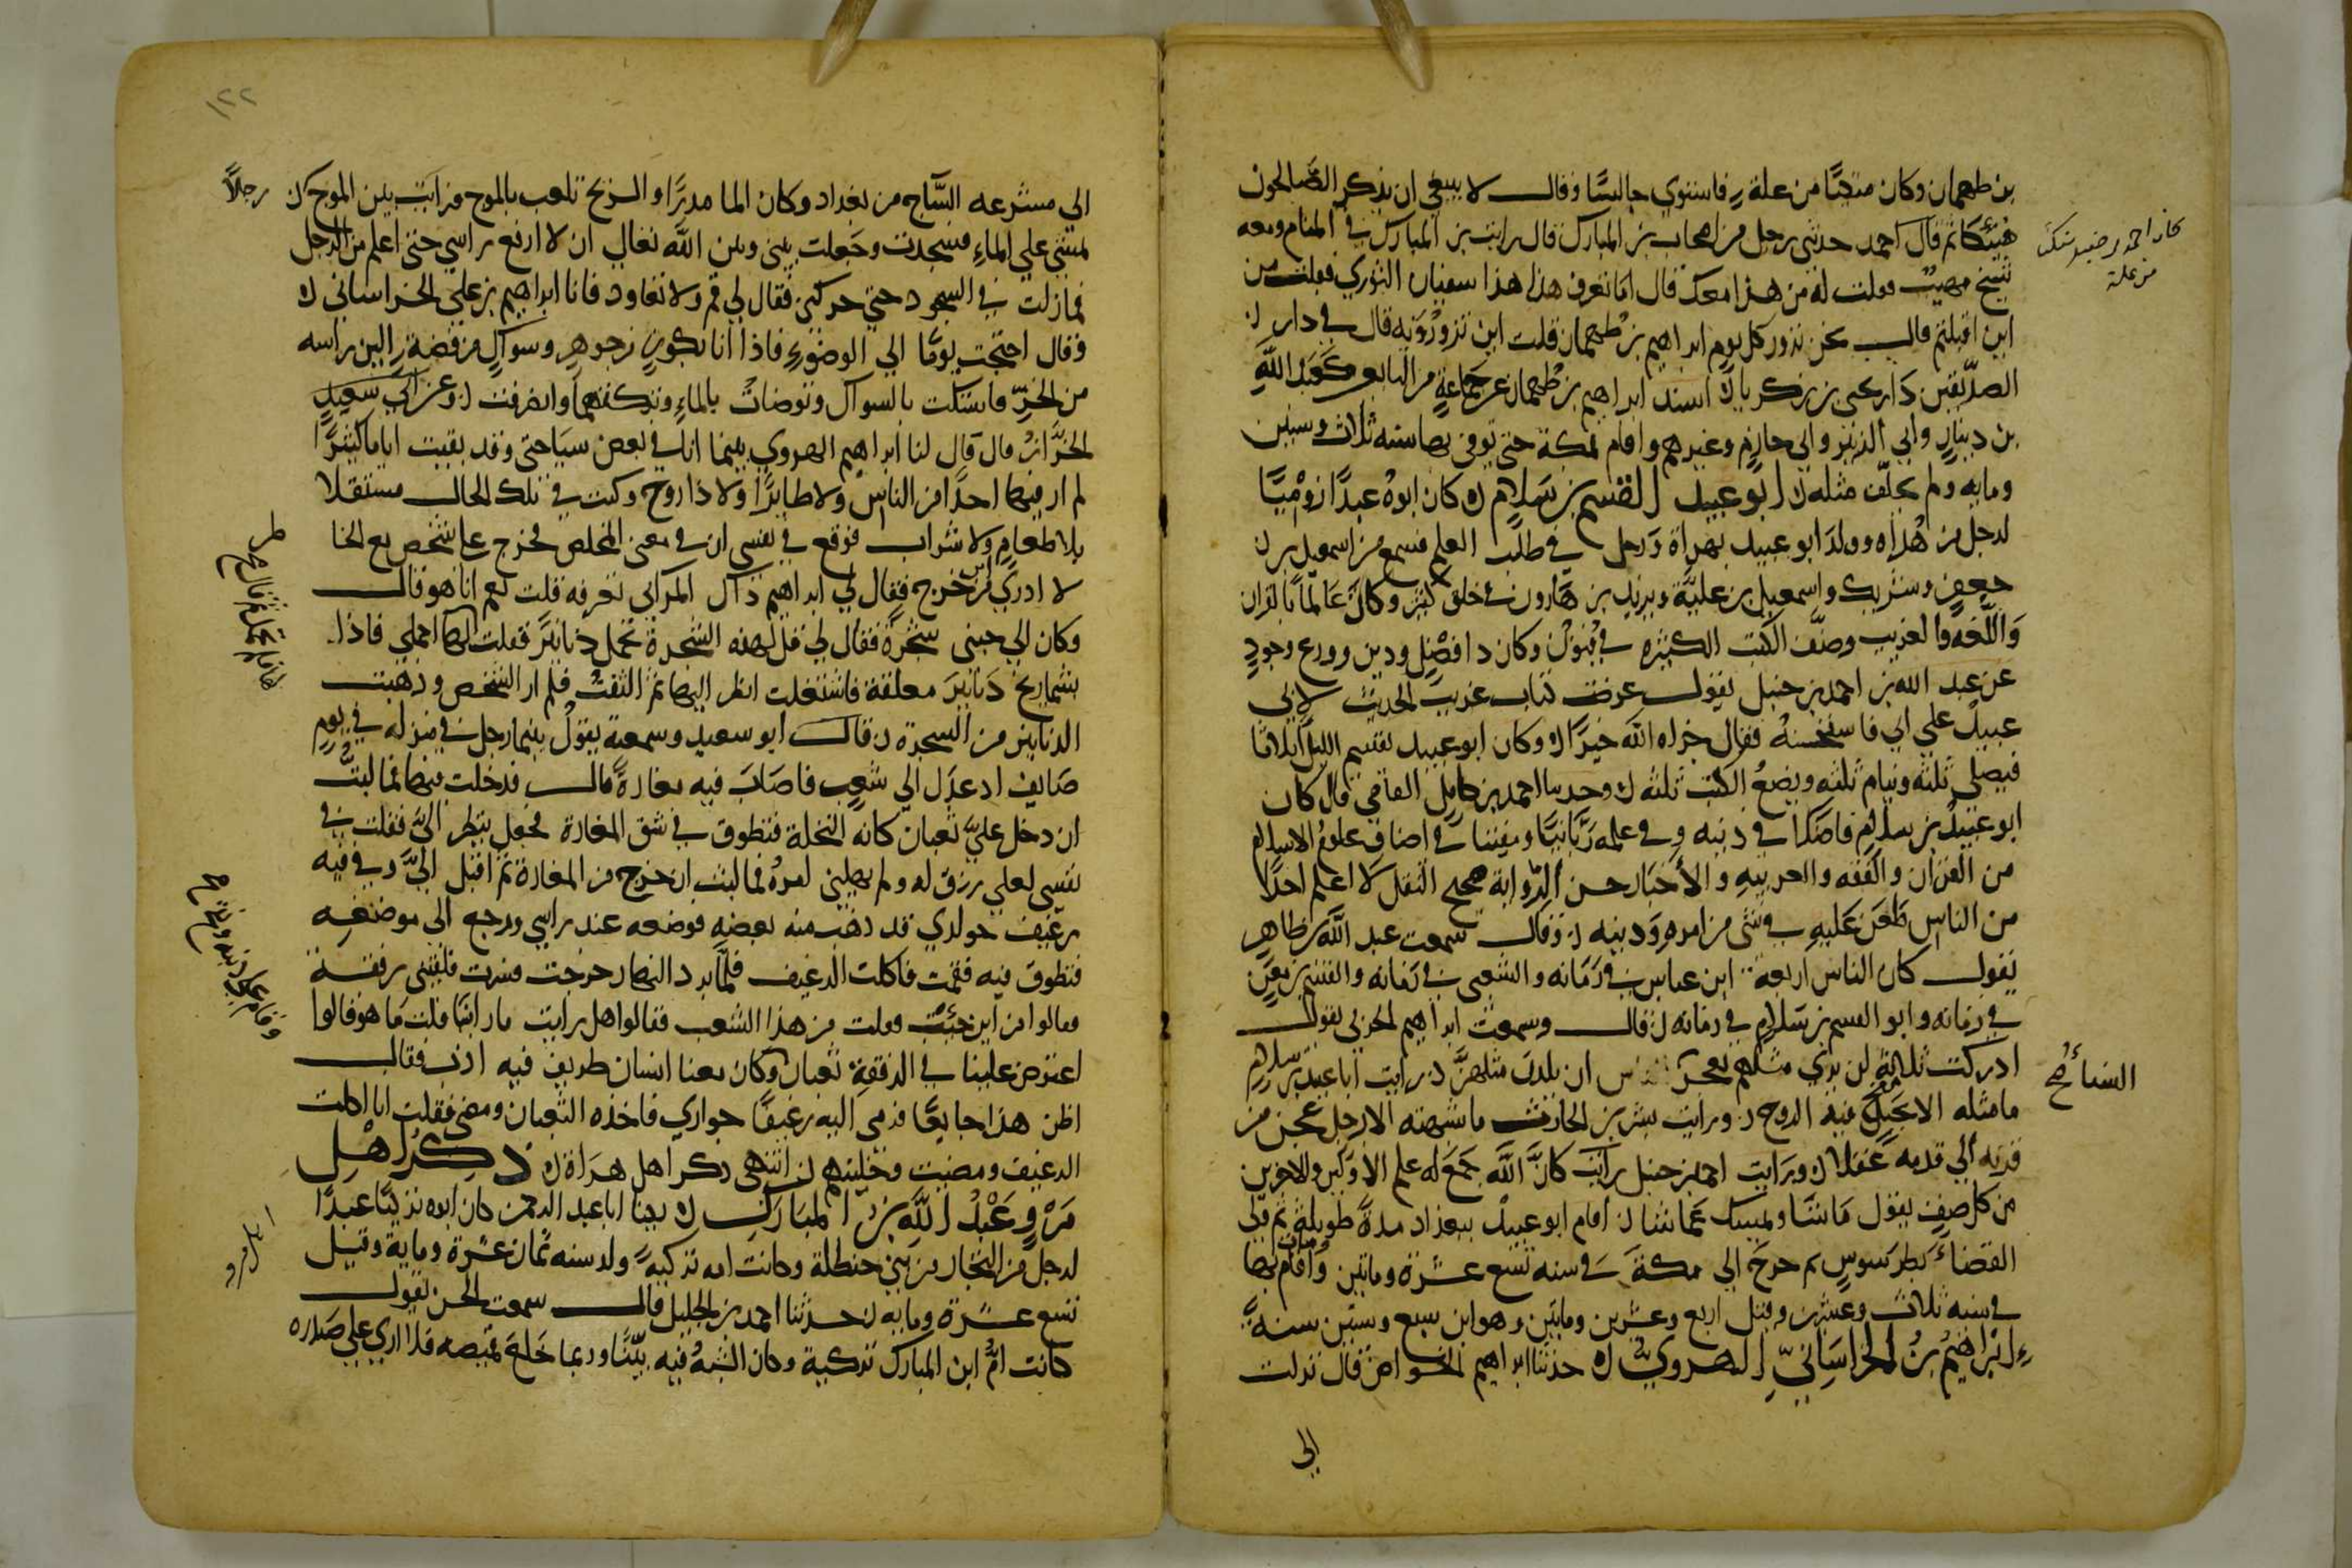 بن طهمان وكان متكيا من علة فاستوي جالسا وقال لا ينبغي ان يذكر الصالحون
فيتكا ثم قال احمد حدثني رجل من اصحاب بن المبارك قال رايت بن المبارك في المنام ومعه
شيخ مهيب فقلت له من هذا معك قال اما تعرف هذا هذا سفيان الثوري فقلت من
اين اقبلتم قال نحن نزور كل يوم ابراهيم بن طهمان قلت اين تزورونه قال في دار
الصديقين دار يحيى بن زكريا اسند ابراهيم بن طهمان عن جماعة من التابعين كعبد الله
بن دينار وابي الزبير وابي حازم وغيرهم واقام بمكة حتى توفي بها سنة ثلاث وستين
وماية ولم يخلف مثله ابو عبيد القسم بن سلام كان ابوه عبدا روميا
لرجل من هراه وولد ابو عبيد بهراة ورحل في طلب العلم فسمع من اسمعيل بن
جعفر وشريك واسمعيل بن علية ويزيد بن هارون في خلق كثير وكان عالما بالقران
واللغه والغريب وصنف الكتب الكثيرة في فنون وكان ذا فضل ودين وورع وجود
عن عبد الله بن احمد بن حنبل يقول عرضت كتاب غريب الحديث لابي
عبيد علي ابي فاستحسنه فقال جزاه الله خيرا وكان ابو عبيد يقسم الليل اثلاثا
فيصلي ثلثه وينام ثلثه ويضع الكتب ثلثه وحدثنا احمد بن كامل القاضي قال كان
ابو عبيد بن سلام فاضلا في دينه وفي علمه ربانيا ومفننا في اصناف علوم الاسلام
من القران والفقه والعربيه والاخبار حسن الرواية صحيح النقل لا اعلم احدا
من الناس طعن عليه في شي من امره ودينه وقال سمعت عبد الله بن طاهر
يقول كان الناس اربعة ابن عباس في زمانه والشعبي في زمانه والقسم بن معن
في زمانه وابو القسم بن سلام في زمانه قال وسمعت ابراهيم الحربي يقول
ادركت ثلاثة لن يري مثلهم يعجز ان يلدن مثلهن رايت ابا عبيد بن سلام
ما مثله الا بجبل فيه الروح ورايت بشر بن الحارث ما شبهته الا رجل عجن من
قرنه الي قدمه عقلا ورايت احمد بن حنبل رايت كان الله جمع له علم الاولين والاخرين
من كل صنف يقول ما شا ويمسك عما شا اقام ابو عبيد ببغداد مدة طويلة ثم ولي
القضا بطرسوس ثم خرج الي مكة في سنه تسع عشرة وماتين واقام بها ومات
في سنه ثلاث وعشرين وقيل اربع وعشرين وماتين وهو ابن سبع وستين سنة
ابراهيم بن الخراساني الهروي حدثنا ابراهيم الخواص قال نزلت
الي
كان احمد بن حنبل متكئا
من علة
السائح
١٢٢
الي مشرعه الساج من بغداد وكان الما مدا والريح تلعب بالموج فرايت بين الموج رجلا
يمشي علي الماء فسجدت وجعلت بيني وبين الله تعالي ان لا ارفع راسي حتى اعلم من الرجل
فما زلت في السجود حتي حركني فقال لي قم ولا تعاود فانا ابراهيم بن علي الخراساني
وقال احتجت يوما الي الوضوء فاذا انا بكوز من جوهر وسواك من فضة الين راسه
من الخز فاستكت بالسواك وتوضات بالماء وتركتهما وانصرفت وعن ابي سعيد
الخراز قال قال لنا ابراهيم الهروي بينما انا في بعض سياحتي وقد بقيت اياما كثيرا
لم ار فيها احدا من الناس ولا طايرا ولا ذا روح وكنت في تلك الحال مستقلا
بلا طعام ولا شراب فوقع في نفسي اني في معنى المخلص فخرج علي شخص مع الخا
لا ادري من اين خرج فقال لي ابراهيم ذاك المراي تعرفه قلت نعم انا هو قال
وكان الي جنبي شجرة فقال لي قل لهذه الشجرة تحمل دنانير فقلت لها احملي فاذا
بشماريخ دنانير معلقة فاشتغلت انظر اليها ثم التفت فلم ار الشخص وذهبت
الدنانير من الشجرة قال ابو سعيد وسمعته يقول بينما رجل في منزله في يوم
صايف اذ عدل الي شعب فاصاب فيه مغارة قال فدخلت فيها فما لبثت
ان دخل علي ثعبان كانه النخلة فتطوق في شق المغارة فجعل ينظر الي فقلت في
نفسي لعلي رزق له ولم يهلني امره فما لبث ان خرج من المغارة ثم اقبل الي وفي فيه
رغيف حواري قد ذهب منه بعضه فوضعه عند راسي ورجع الي موضعه
فتطوق فيه فقمت فاكلت الرغيف فلما برد النهار خرجت فسرت فلقيني رفقة
فقالوا من اين جيت فقلت من هذا الشعب فقالوا هل رايت ما راينا قلت ما هو قالوا
اعترض علينا في الرفقة ثعبان وكان معنا انسان ظريف فيه ادب فقال
اظن هذا جايعا فرمى اليه رغيفا حواري فاخذه الثعبان ومضى فقلت انا اكلت
الرغيف ومضيت وخليتهم انتهى ذكر اهل هراة ذكر اهل
مرو عبد الله بن المبارك يكنا ابا عبد الرحمن كان ابوه تركيا عبدا
لرجل من التجار من بني حنظلة وكانت امه تركية ولد سنه ثمان عشرة وماية وقيل
تسع عشرة وماية حدثنا احمد بن الخليل قال سمعت الحسن يقول
كانت ام ابن المبارك تركية وكان الشبه فيه بينا وربما خلع قميصه فلا اري علي صدره